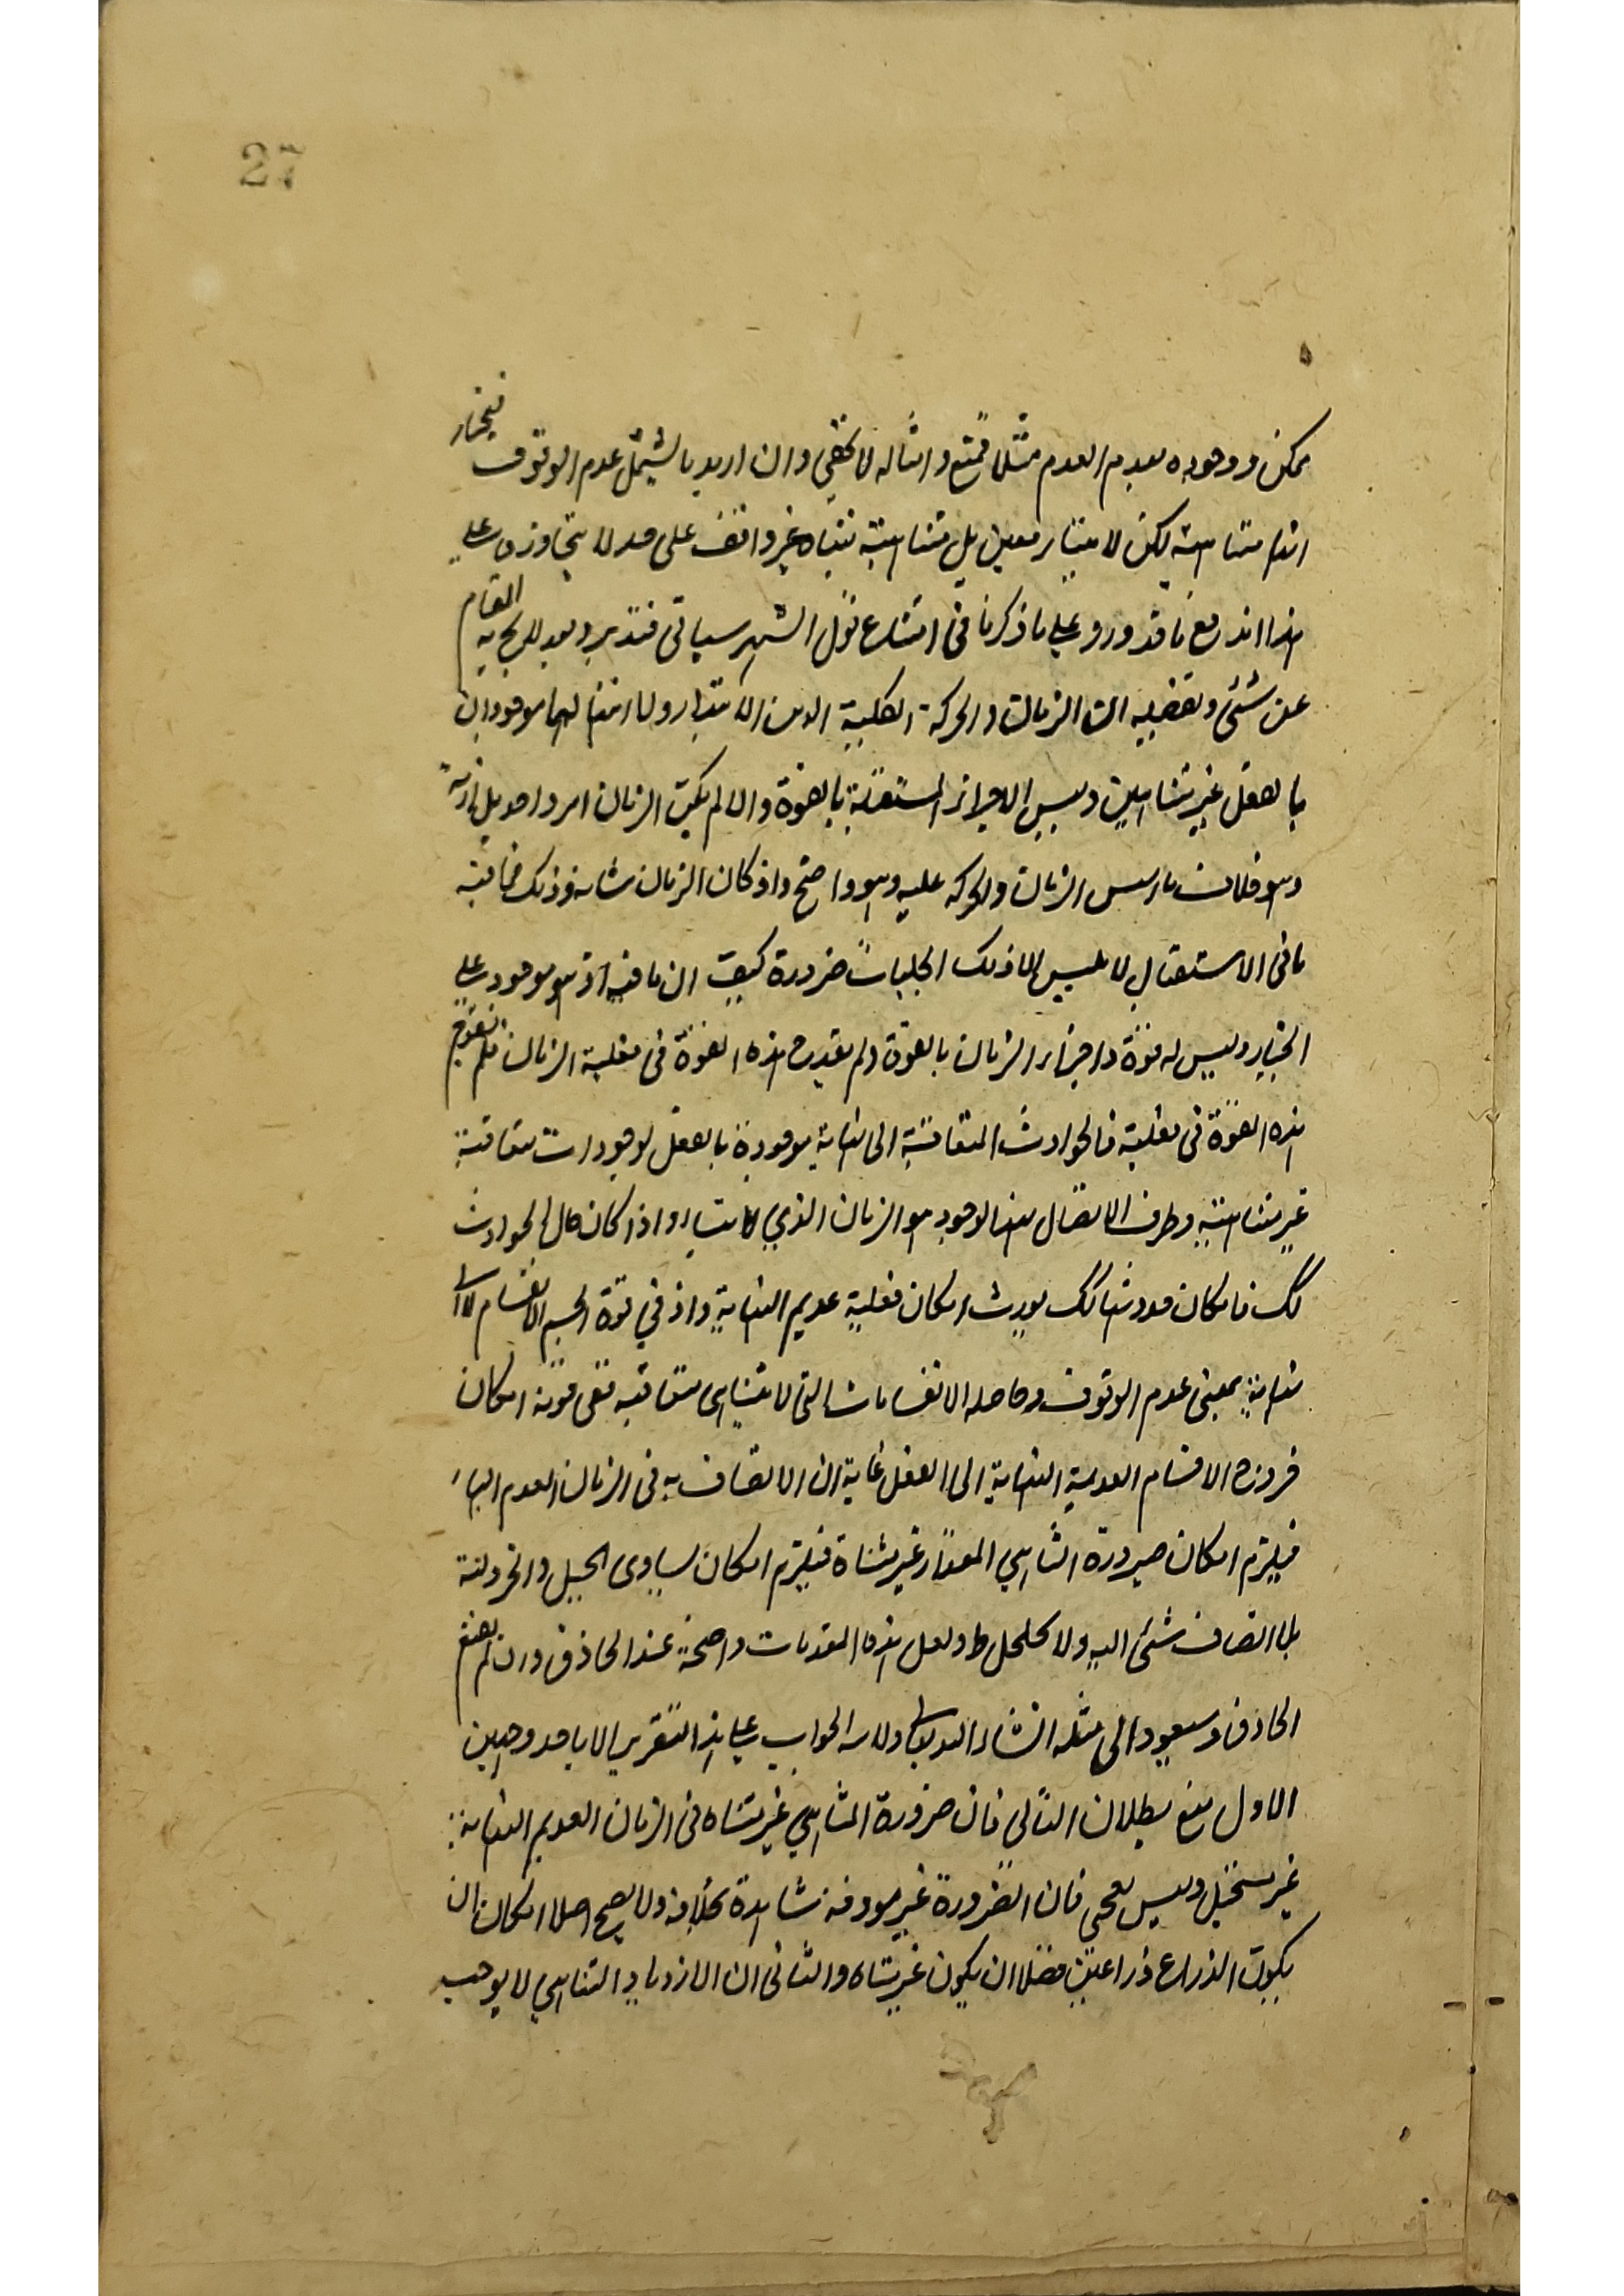 27
ممكن ووجوده بعدم العدم مثلا ممتنع وامثاله لا تخفى وان اريد بالشيمل عدم الوقوف فنختار
انها متناهية لكن لا بتناه معين بل متناهية بتناه غير واقف على حد لا يتجاوزه وعلى
هذا اندفع ما قد ورد على ما ذكرنا فى امتناع قول الشهرستانى فتدبر وبعد المقام
عن شئ وتفصيله ان الزمان والحركة القطعية ولا انتهاء لهما موجودان
بالفعل غير متناهيين وليس الاجزاء المستقبلة بالقوة والا لم يكن الزمان امر واحد بل ازمنة
وهو الزمان والحركة عليه وهو واضح واذ كان الزمان شانه ذلك فما فيه
ما فى الاستقبال لا ليس الا ذلك ضرورة كيف ان ما فيه اذ هو موجود على
وليس له قوة واجزاء الزمان بالقوة ولم يقدح هذه القوة فى فعلية الزمان فلم يقدح
هذه القوة فى فعلية فالحوادث المتعاقبة الى النهاية موجودة بالفعل لوجودات متعاقبة
غير متناهية وظرف الاتصال بهذا الوجود هو الزمان الذي لا يتناه واذا كان حال الحوادث
كك فامكان حدوثها كك يورث امكان فعلية عديم النهاية واذ في قوة الجسم الانقسام لا الى
نهاية بمعنى عدم الوقوف وحاصله الانقسامات التى لا تتناهى متعاقبة ففى قوته امكان
خروج الاقسام العديمة النهاية الى الفعل غاية ان الاتصاف به فى الزمان العديم النهاية
فيلزم امكان صيرورة المتناهي المقدار غير متناه فيلزم امكان تساوى الجبل والخردلة
بلا انضاف شئ اليه ولا تخلخل ولعل هذه المقدمات واضحة عند الحاذق وان لم يقنع
الحاذق وسيعود الى مثله انشاء الله تعالى ولا الجواب على هذا التقرير الا باحد وجهين
الاول منع بطلان التالى فان صيرورة المتناهي غير متناه فى الزمان العديم النهاية
غير مستحيل وليس بشئ فان الضرورة غير موفة شاهدة بخلافه ولا يصح اصلا امكان ان
يكون الذراع ذراعين فضلا ان يكون غير متناه والثانى ان الازدياد المتناهي لا يوجب